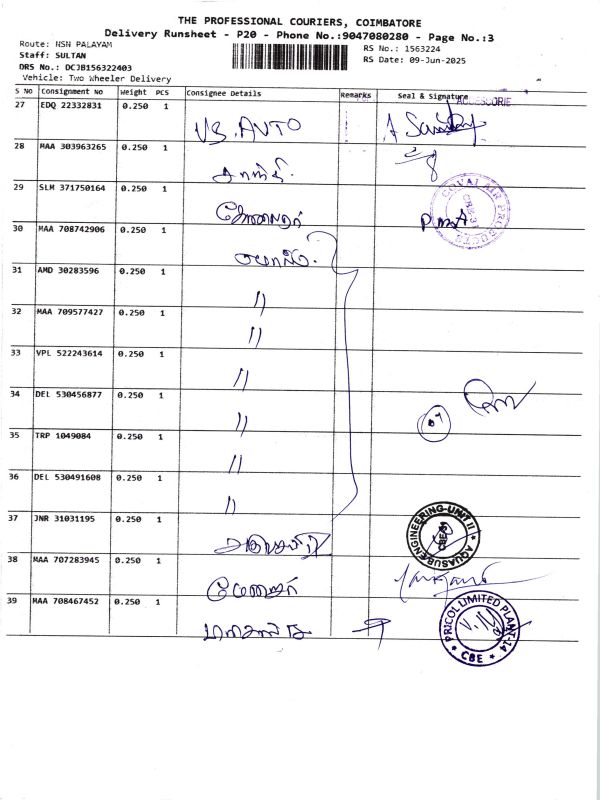 THE PROFESSIONAL COURIERS, COIMBATORE
Delivery Runsheet - P20 - Phone No.:9047080280 - Page No.:3
Route: NSN PALAYAM
RS No.: 1563224
Staff: SULTAN
RS Date: 09-Jun-2025
DRS No.: DCJB156322403
Vehicle: Two Wheeler Delivery
S No Consignment No Weight PCS Consignee Details Remarks Seal & Signature
ACCESSORIE
27 EDQ 22332831 0.250 1 V.S. AUTO
28 MAA 303963265 0.250 1
29 SLM 371750164 0.250 1
COVAI AIR PRODUCTS
CBE-31
30 MAA 708742906 0.250 1
31 AMD 30283596 0.250 1 〃
32 MAA 709577427 0.250 1 〃
33 VPL 522243614 0.250 1 〃
34 DEL 530456877 0.250 1 〃
07
35 TRP 1049084 0.250 1 〃
36 DEL 530491608 0.250 1 〃
37 JNR 31031195 0.250 1
AQUASUB ENGINEERING-UNIT II
CBE-31
38 MAA 707283945 0.250 1
39 MAA 708467452 0.250 1
PRICOL LIMITED PLANT-14
CBE